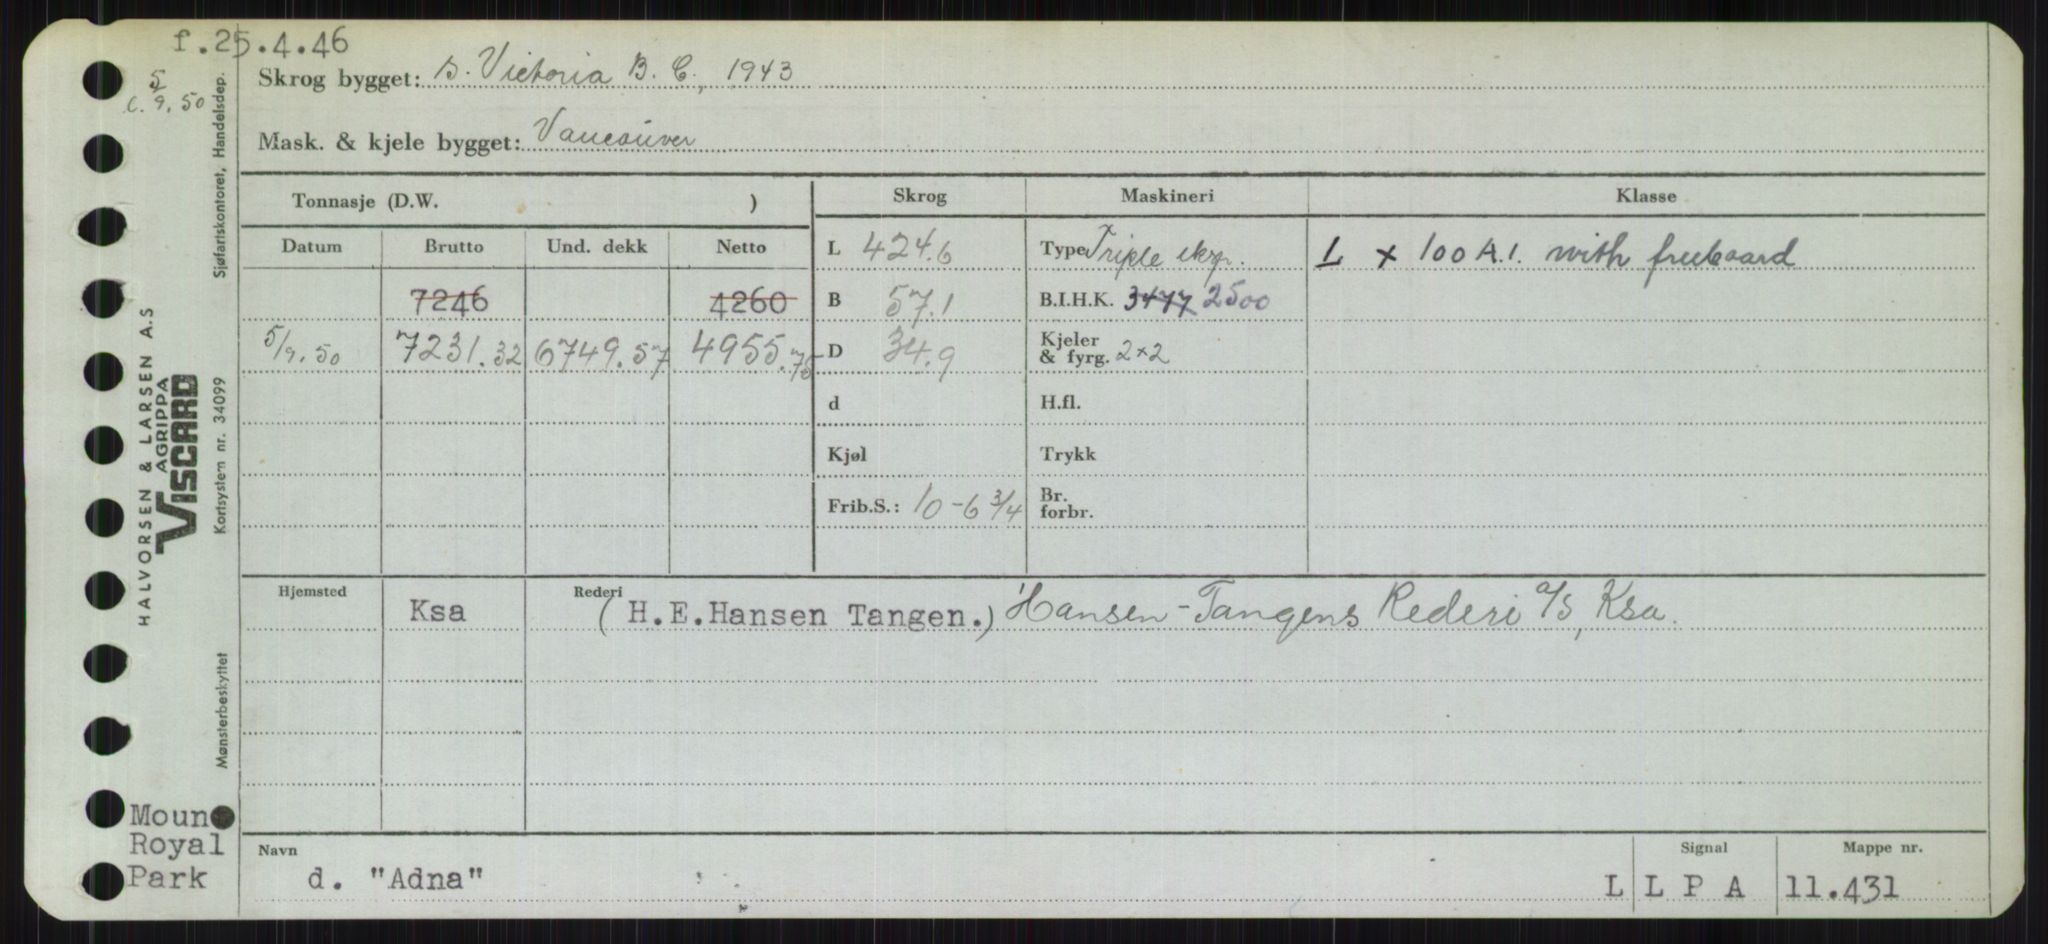 f.25.4.46
5/9.50
Skrog bygget: s. Victoria B.C., 1943
Mask. & kjele bygget: Vancouver
Tonnasje (D.W. )
Skrog Maskineri Klasse
Datum Brutto Und. dekk Netto
L 424.6 Type Triple exp. L + 100 A.1. with freeboard
7246 4260 B 57.1 B.I.H.K. 3477 2500
5/9.50 7231.32 6749.57 4955.75 D 34.9 Kjeler & fyrg. 2x2
d H.fl.
Kjøl Trykk
Frib.S.: 10-6 3/4 Br. forbr.
Hjemsted Ksa Rederi (H.E.Hansen Tangen.) Hansen-Tangens Rederi a/s, Ksa.
Navn Signal Mappe nr.
d. "Adna" L L P A 11.431
Moun
Royal
Park
HALVORSEN & LARSEN A.S
AGRIPPA
VISCARD
Kortsystem nr. 34099
Sjøfartskontoret, Handelsdep.
Mønsterbeskyttet